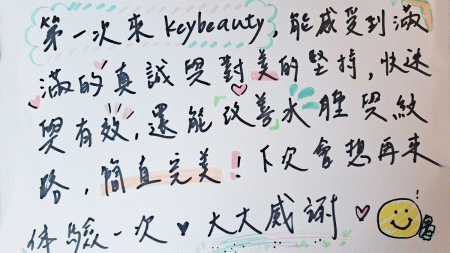 第一次來 keybeauty, 能感受到滿
滿的真誠與對美的堅持, 快速
與有效, 還能改善水腫與紋
路, 簡直完美! 下次會想再來
体驗一次 ♥ 大大感謝 ♡